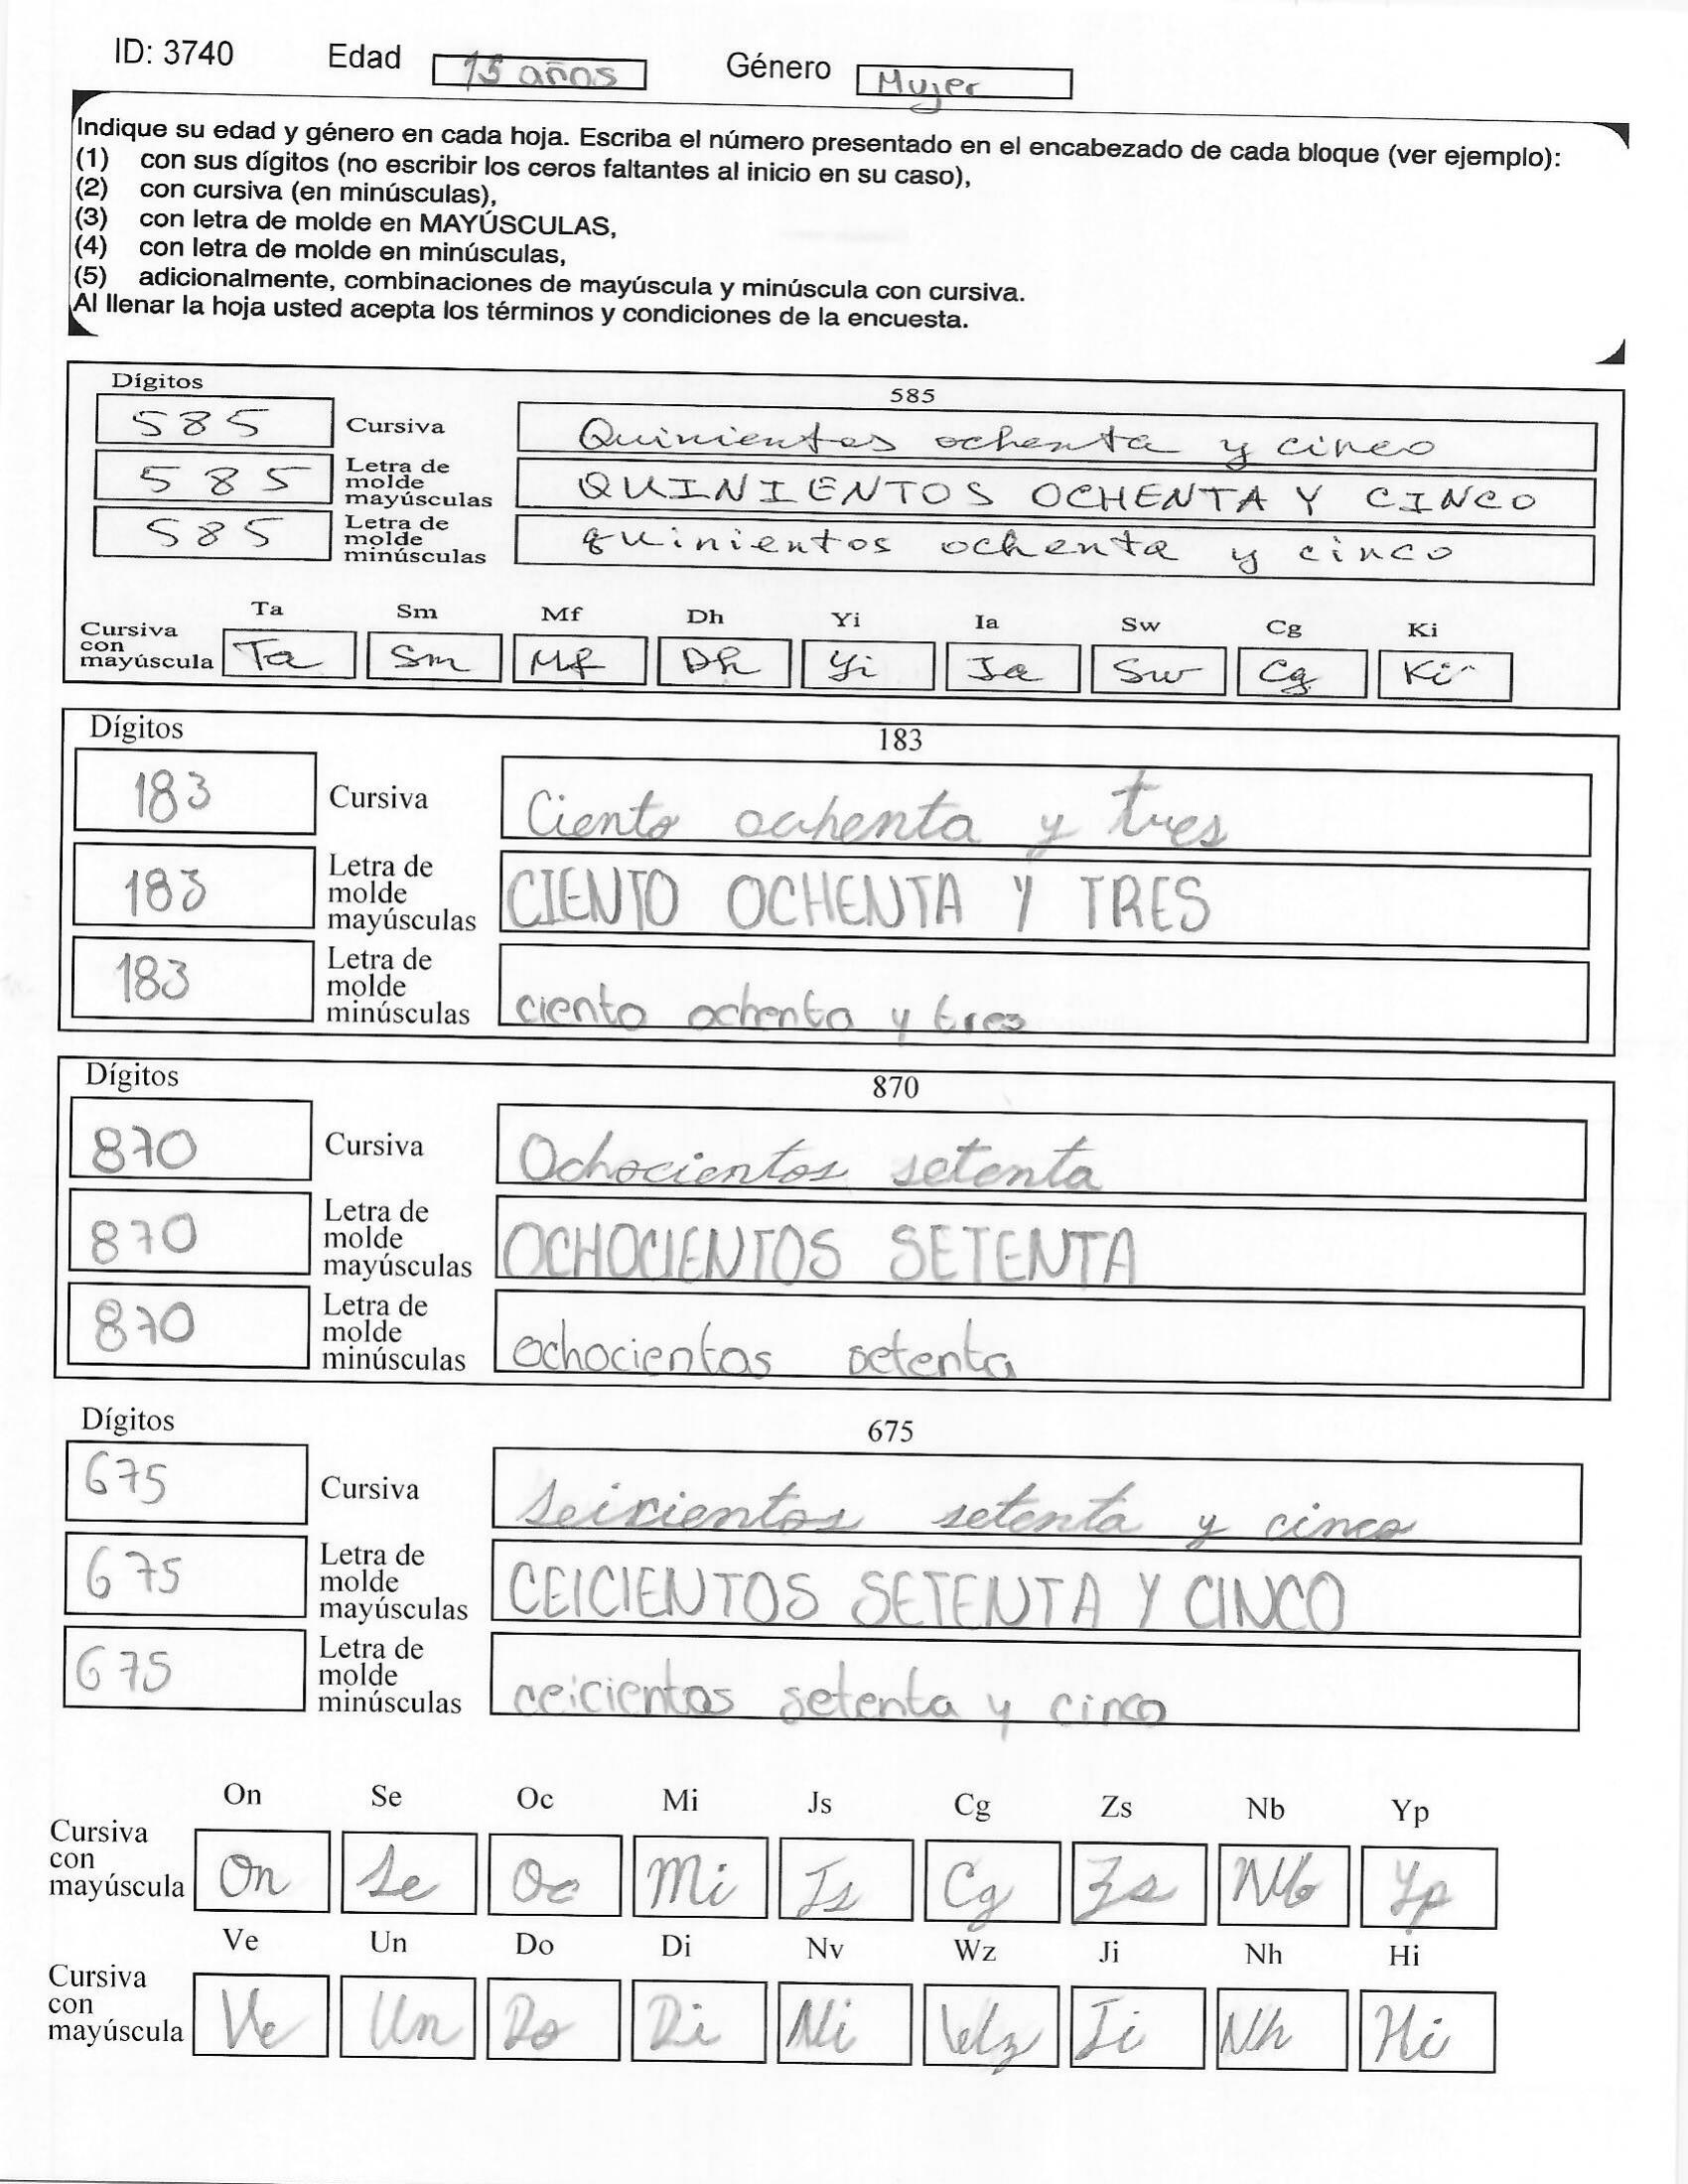 ID: 3740 Edad 15 años Género Mujer
Indique su edad y género en cada hoja. Escriba el número presentado en el encabezado de cada bloque (ver ejemplo):
(1) con sus dígitos (no escribir los ceros faltantes al inicio en su caso),
(2) con cursiva (en minúsculas),
(3) con letra de molde en MAYÚSCULAS,
(4) con letra de molde en minúsculas,
(5) adicionalmente, combinaciones de mayúscula y minúscula con cursiva.
Al llenar la hoja usted acepta los términos y condiciones de la encuesta.
Dígitos 585
585 Cursiva Quinientos ochenta y cinco
585 Letra de molde mayúsculas QUINIENTOS OCHENTA Y CINCO
585 Letra de molde minúsculas quinientos ochenta y cinco
Ta Sm Mf Dh Yi Ia Sw Cg Ki
Cursiva con mayúscula Ta Sm Mf Dh Yi Ia Sw Cg Ki
Dígitos 183
183 Cursiva Ciento ochenta y tres
183 Letra de molde mayúsculas CIENTO OCHENTA Y TRES
183 Letra de molde minúsculas ciento ochenta y tres
Dígitos 870
870 Cursiva Ochocientos setenta
870 Letra de molde mayúsculas OCHOCIENTOS SETENTA
870 Letra de molde minúsculas ochocientos setenta
Dígitos 675
675 Cursiva seicientos setenta y cinco
675 Letra de molde mayúsculas CEICIENTOS SETENTA Y CINCO
675 Letra de molde minúsculas ceicientos setenta y cinco
On Se Oc Mi Js Cg Zs Nb Yp
Cursiva con mayúscula On Se Oc Mi Js Cg Zs Nb Yp
Ve Un Do Di Nv Wz Ji Nh Hi
Cursiva con mayúscula Ve Un Do Di Ni Wz Ji Nh Hi